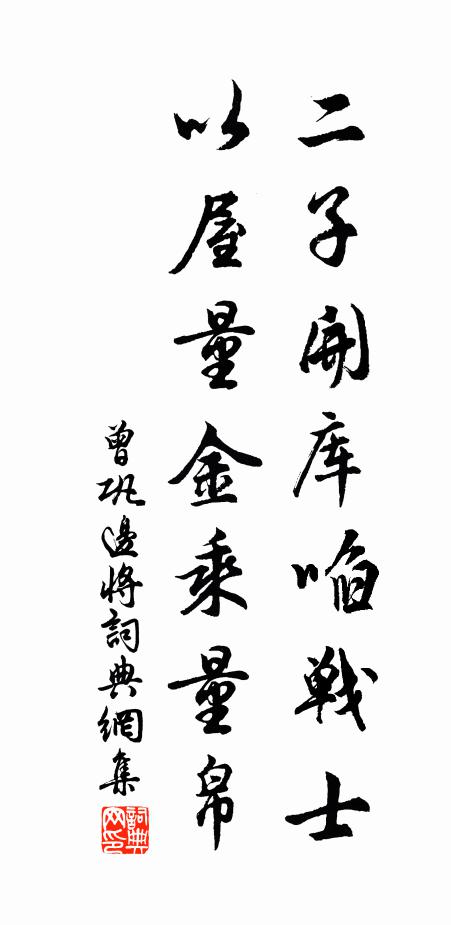 二子開库啗戰士
以屋量金乘量帛
曾巩邊將詞典網集
詞典网印